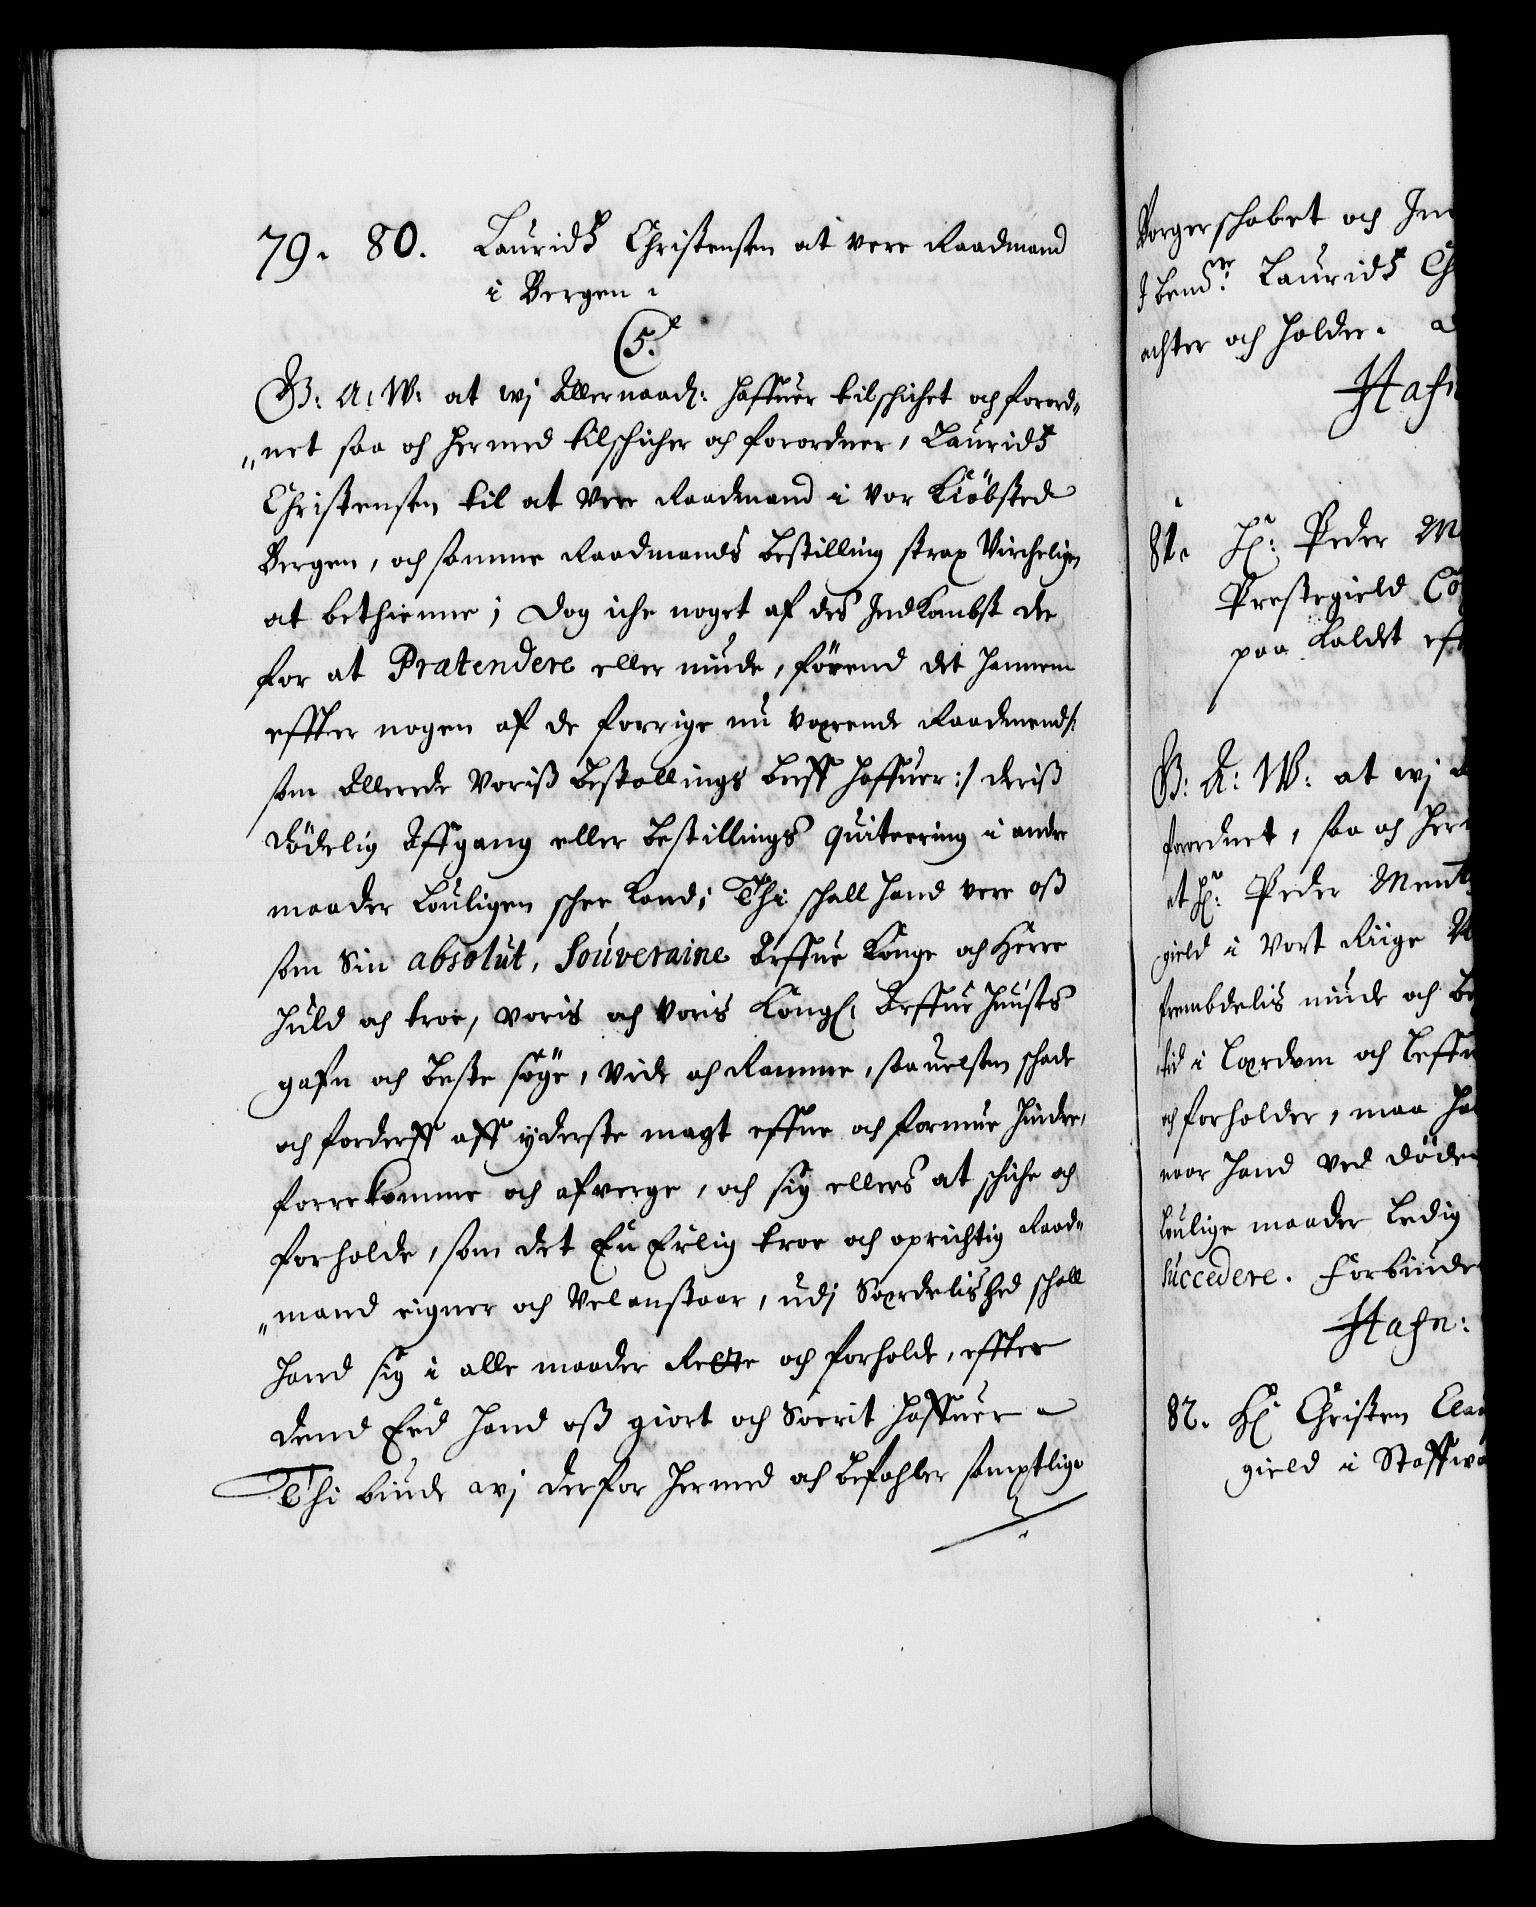 79. 80. Lauridtz Christensen at vere Raadmand
i Bergen.
(5.
G: A: W: at wj Allernaad: haffuer tilschichet och forord„
„net saa och hermed tilschicher och forordner, Lauridtz
Christensen til at vere Raadmand i vor Kiöbsted
Bergen, och samme Raadmands bestilling strax Virchelig
at bethienne; dog iche noget af des Indkombst der
for at Prætendere eller niude, förend det hannem
effter nogen af de forrige nu vaxrende Raadmend /:
som Allerede Voriß Bestallings breff haffuer :/ deriß
dödelig Affgang eller bestillings quitering i andre
maader louligen schee kand; Thi schall hand vere oß
som Sin absolut, Souveraine Arffue Konge och Herre
huld och troe, voris och voris Kongl: Arffue Huusis
gafn och beste söge, vide och Ramme, saauelsom schade
och forderff aff yderste magt effne och formue hindre,
forrekomme och afverge, och sig ellers at schiche och
forholde, som det En Erlig troe och oprichtig Raad„
„mand eigner och Velanstaar, udj Særdelished schall
hand sig i alle maader Rette och forholde, effter
dend Eed hand oß giort och Soerit haffuer.
Thi biude wj derfor hermed och befahler samptlige
Borgerschabet och
Lauridtz
achter och holder.
Hafn
81. Hr: Peder
Prestegield
paa Kaldet
G: A: W: at wj
forordnet, saa och
at Hr: Peder
gield i Vort Riige
frembdelis niude och
tid i Lærdom och
och forholder, maa
naar hand ved
loulige maader Ledig
succedere. Forbiude
Hafn:
82. Hr Christen
gield i